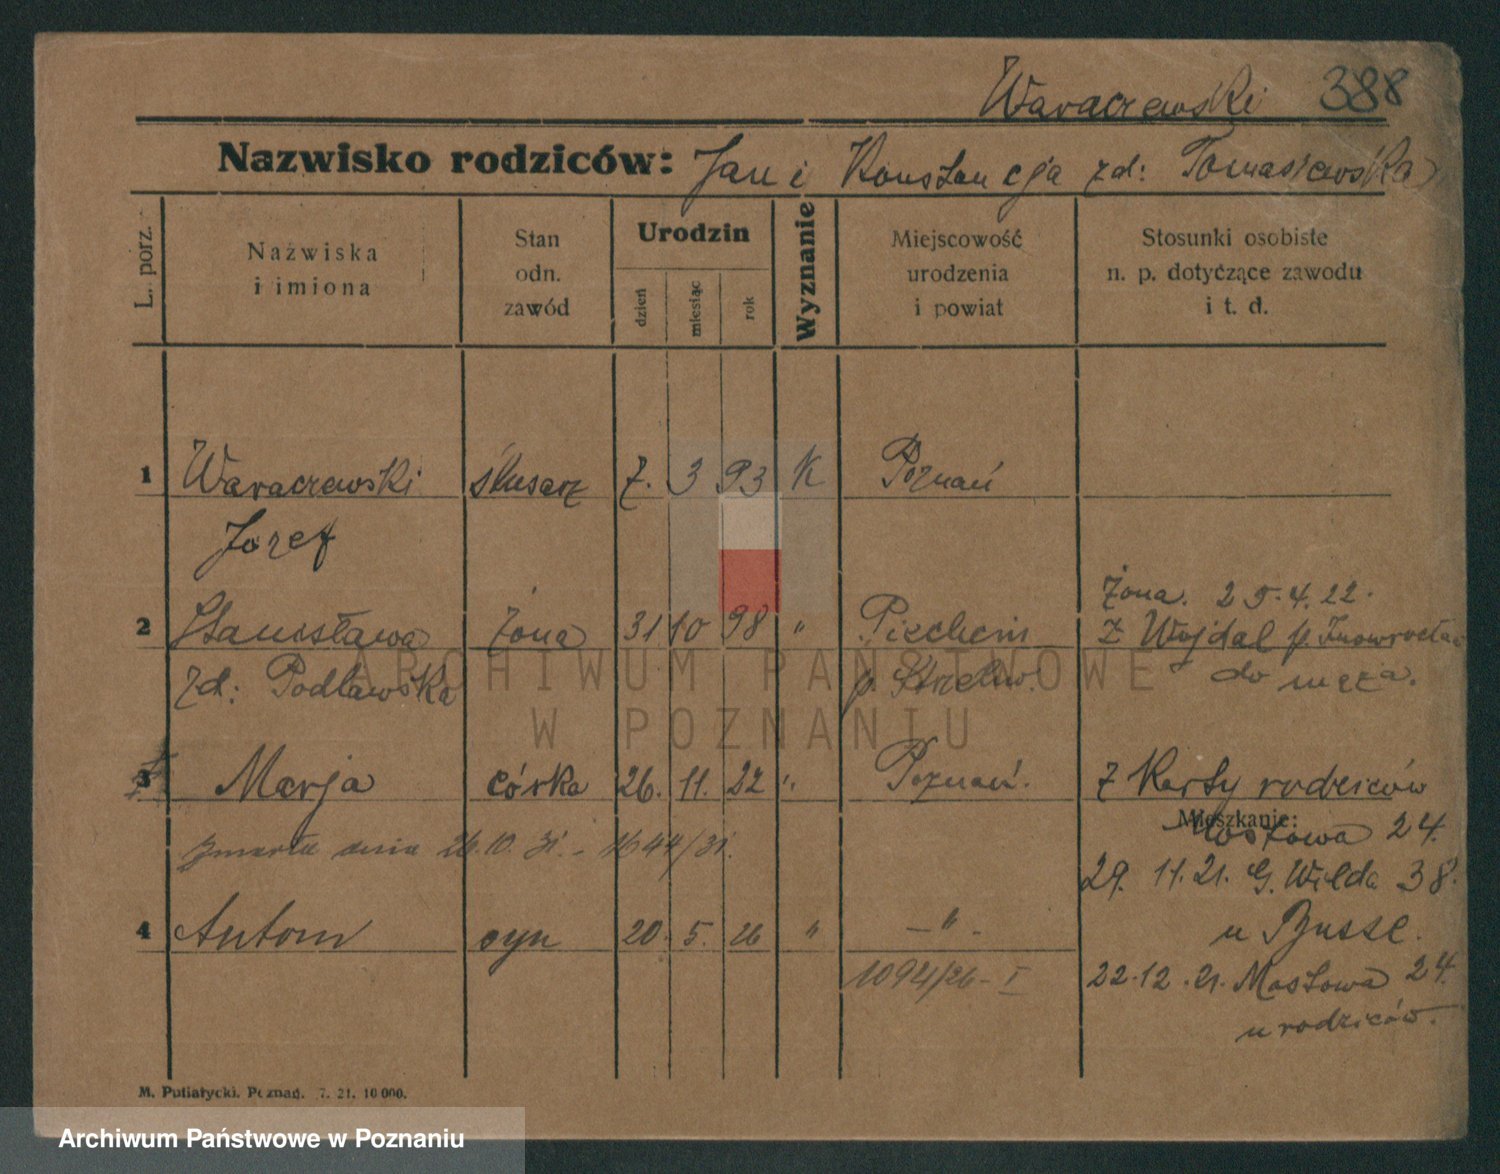 Waraczewski 388
Nazwisko rodziców: Jan i Konstancja zd: Tomaszewska
L. porz.
Nazwiska
i imiona
Stan
odn.
zawód
Urodzin
dzień
miesiąc
rok
Wyznanie
Miejscowość
urodzenia
i powiat
Stosunki osobiste
n. p. dotyczące zawodu
i t. d.
1 Waraczewski ślusarz 7. 3 93 K Poznań
Józef
Żona. 25.4.22.
2 Stanisława Żona 31 10 98 " Piechcin z Wojdal p. Inowrocław
zd: Podlawska p. Strzelno. do męża.
3 Marja córka 26. 11. 22 " Poznań. z Karty rodziców
Mieszkanie:
Mostowa 24.
zmarła dnia 26.10.31. - 1644/31.
29. 11. 21. G. Wilda 38.
4 Antoni syn 20. 5. 26 " - " - u Busse.
1094/26 - I 22.12.21. Mostowa 24.
u rodziców.
M. Putiatycki. Poznań. 7. 21. 10 000.
ARCHIWUM PAŃSTWOWE
W POZNANIU
Archiwum Państwowe w Poznaniu